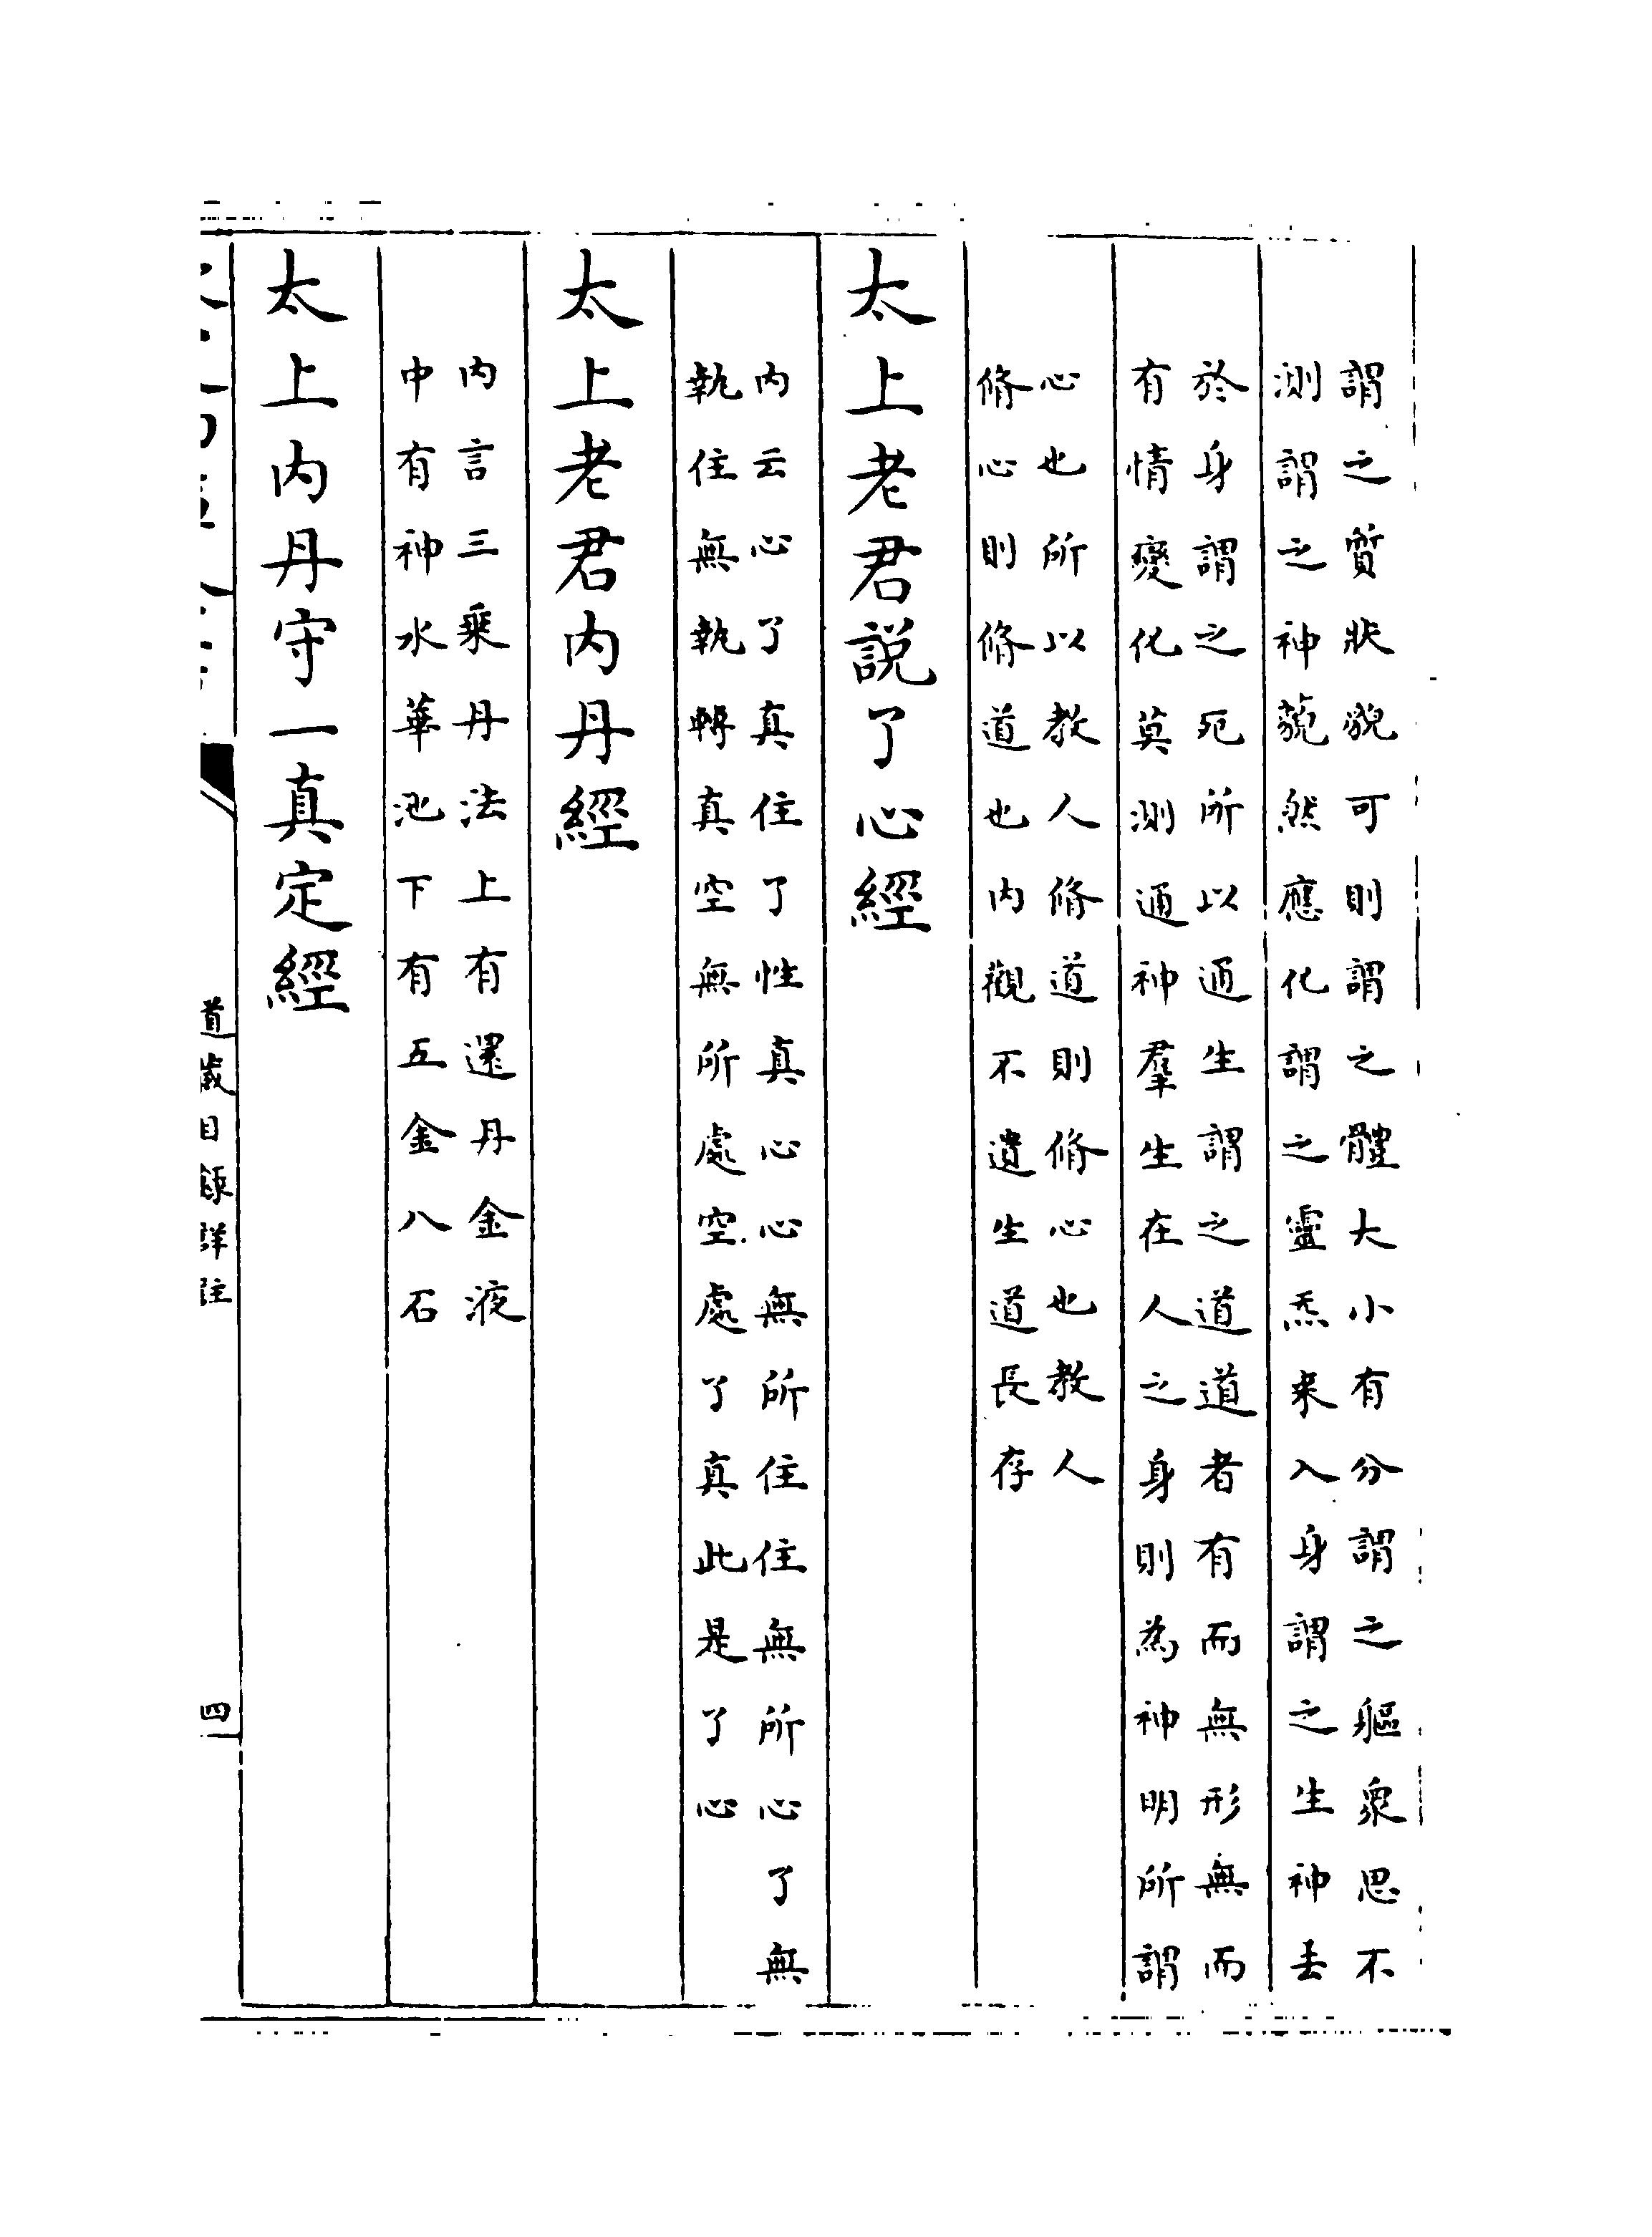 謂之質狀貌可則謂之體大小有分謂之軀衆思不
測謂之神藐然應化謂之靈炁来入身謂之生神去
於身謂之死所以通生謂之道道者有而無形無而
有情變化莫測通神羣生在人之身則為神明所謂
心也所以教人脩道則脩心也教人
脩心則脩道也内觀不遺生道長存
太上老君説了心經
内云心了真住了性真心心無所住住無所心了無
執住無執執轉真空無所處空處了真此是了心
太上老君内丹經
内言三乘丹法上有還丹金液
中有神水華池下有五金八石
太上内丹守一真定經
道藏目録詳註
四